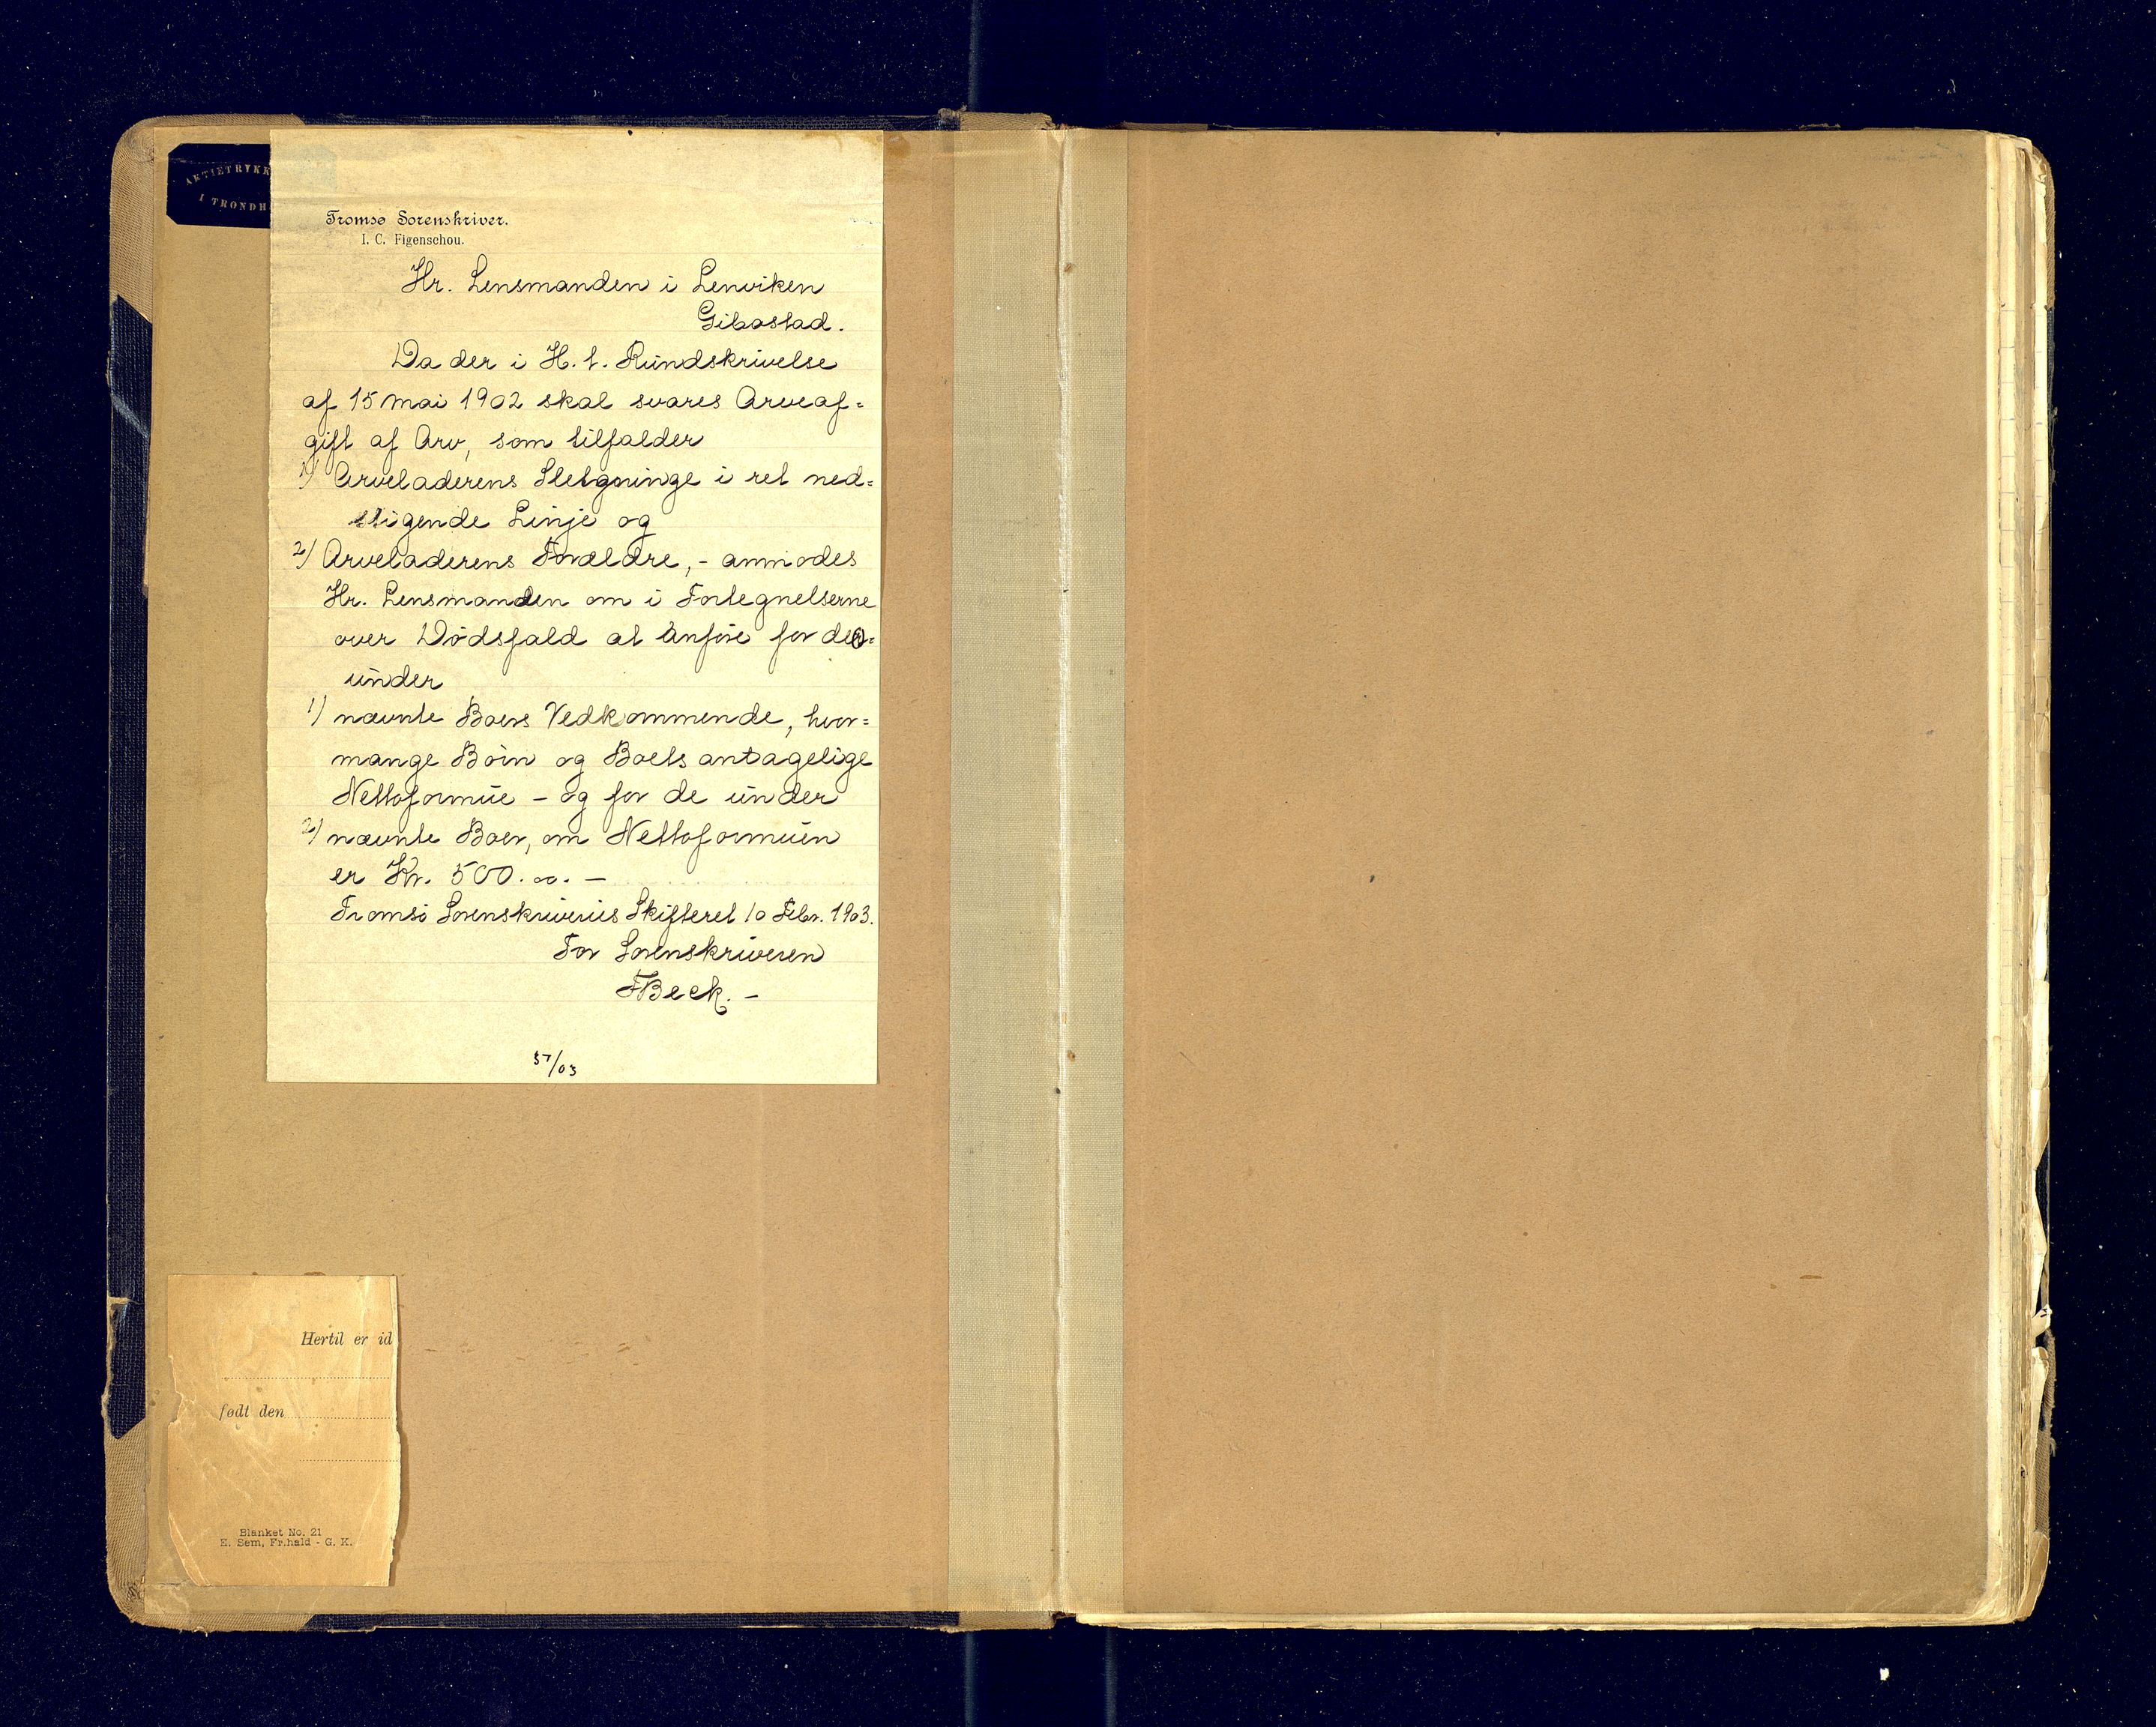 AKTIETRYKK
I TRONDH
Tromsø Sorenskriver.
I. C. Figenschou.
Hr. Lensmanden i Lenviken
Gibostad.
Da der i H. t. Rundskrivelse
af 15 mai 1902 skal svares Arveaf=
gift af Arv, som tilfalder
1) Arveladerens Sletgninge i ret ned=
stigende Linje og
2) Arveladerens Forældre, - anmodes
Hr. Lensmanden om i Fortegnelserne
over Dødsfald at anføre for de
under
1) nævnte Boers Vedkommende, hvor=
mange Børn og Boets antagelige
Nettoformue - og for de under
2) nævnte Boer, om Nettoformuen
er Kr. 500.00. -
Tromsø Sorenskriveries Skifteret 10 Febr. 1903.
For Sorenskriveren
FBeck. -
57/03
Hertil er id
født den
Blanket No. 21
E. Sem, Fr.hald - G. K.